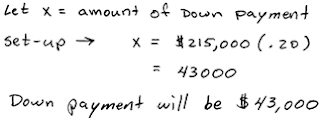 Let x = amount of Down payment
set-up → x = $215,000 (.20)
= 43000
Down payment will be $43,000